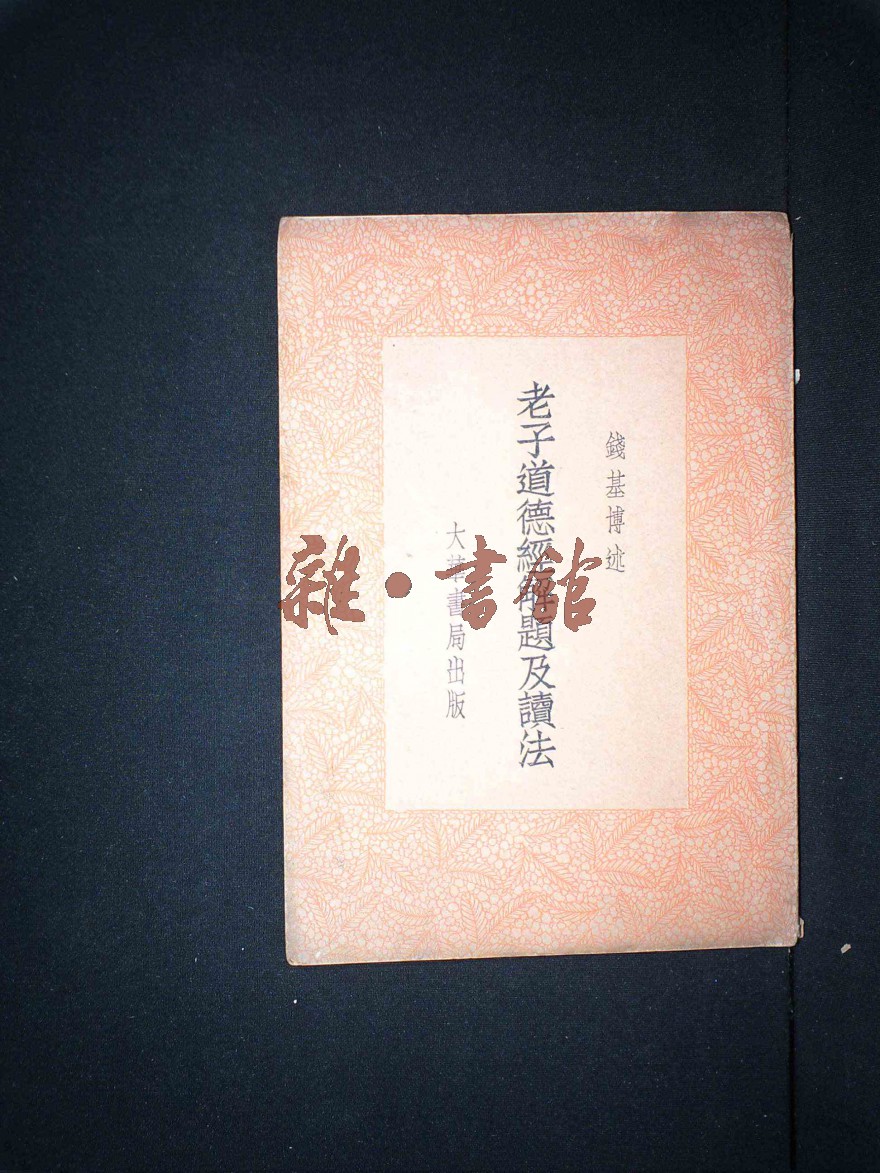 錢基博述
老子道德經解題及讀法
大華書局出版
雜·書館